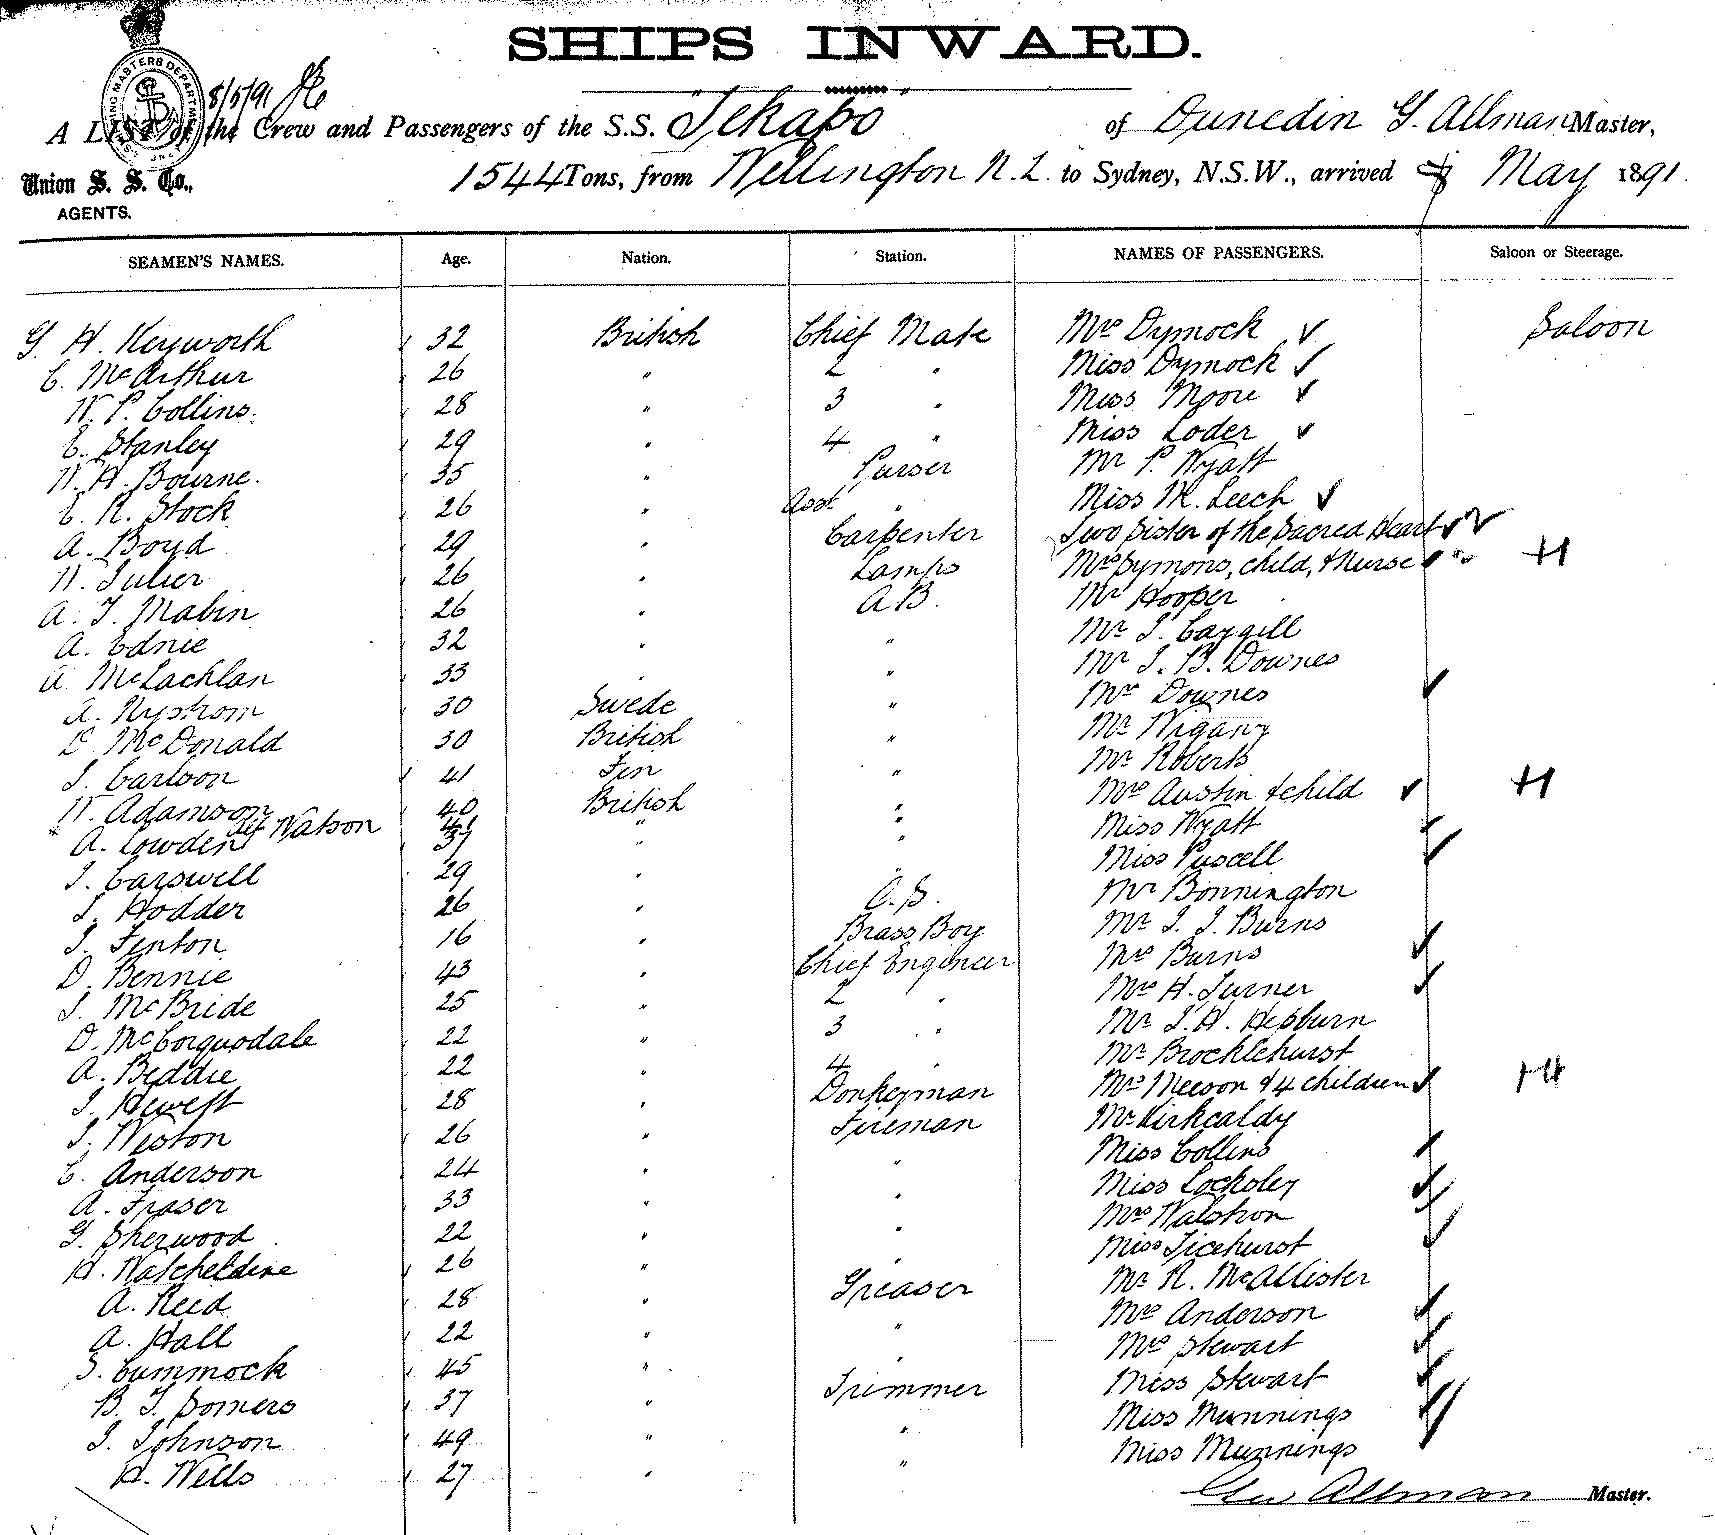 SHIPS INWARD.
8/5/91
A LIST of the Crew and Passengers of the S.S. Tekapo of Dunedin G. Allman Master,
Union S. S. Co.,
AGENTS.
1544 Tons, from Wellington N.Z. to Sydney, N.S.W., arrived May 1891.
SEAMEN'S NAMES. Age. Nation. Station. NAMES OF PASSENGERS. Saloon or Steerage.
G. H. Keyworth 32 British Chief Mate Mrs Dymock Saloon
C. McArthur 26 " 2 " Miss Dymock
W. P. Collins. 28 " 3 " Miss Moore
E. Stanley 29 " 4 " Miss Loder
W. H. Bourne. 35 " Purser Mr P. Wyatt
E. R. Stock 26 " Asst " Miss M. Leech
A. Boyd 29 " Carpenter Two Sister of the Sacred Heart
W. Julier 26 " Lamps Mrs Symons, child, & Nurse
A. T. Mabin 26 " A.B. Mr Hooper
A. Ednie 32 " " Mr J. Cargill
A. McLachlan 33 " " Mr J. B. Downes
A. Nystrom 30 Swede " Mrs Downes
D. McDonald 30 British " Mr Wigany
J. Carlson 41 Fin " Mr Roberts
W. Adamson 40 British " Mrs Austin & child
Watson 41 " " Miss Wyatt
A. Lowden 37 " " Miss Puscell
J. Carswell 29 " " Mr Bonnington
J. Hodder 26 " O.S. Mr J. J. Burns
J. Fenton 16 " Brass Boy Mrs Burns
D. Bennie 43 " Chief Engineer Mrs H. Turner
J. McBride 25 " 2 " Mr J. H. Hepburn
D. McCorquodale 22 " 3 " Mr Brocklehurst
A. Beddie 22 " 4 " Mrs Meeson & 4 children
J. Hewett 28 " Donkeyman Mr Kirkcaldy
J. Weston 26 " Fireman Miss Collins
C. Anderson 24 " " Miss Locksley
A. Fraser 33 " " Mrs Walstron
G. Sherwood 22 " " Miss Ticehurst
H. Watcheldine 26 " " Mr R. McAllister
A. Reed 28 " Greaser Mrs Anderson
A. Hall 22 " " Mrs Stewart
S. Cummock 45 " " Miss Stewart
B. T. Somers 37 " Trimmer Miss Munnings
J. Johnson 49 " " Miss Munnings
H. Wells 27 " "
Geo Allman Master.